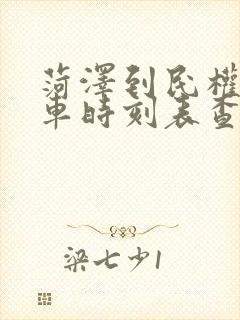 菏澤到民權
車時刻表查
梁七少1